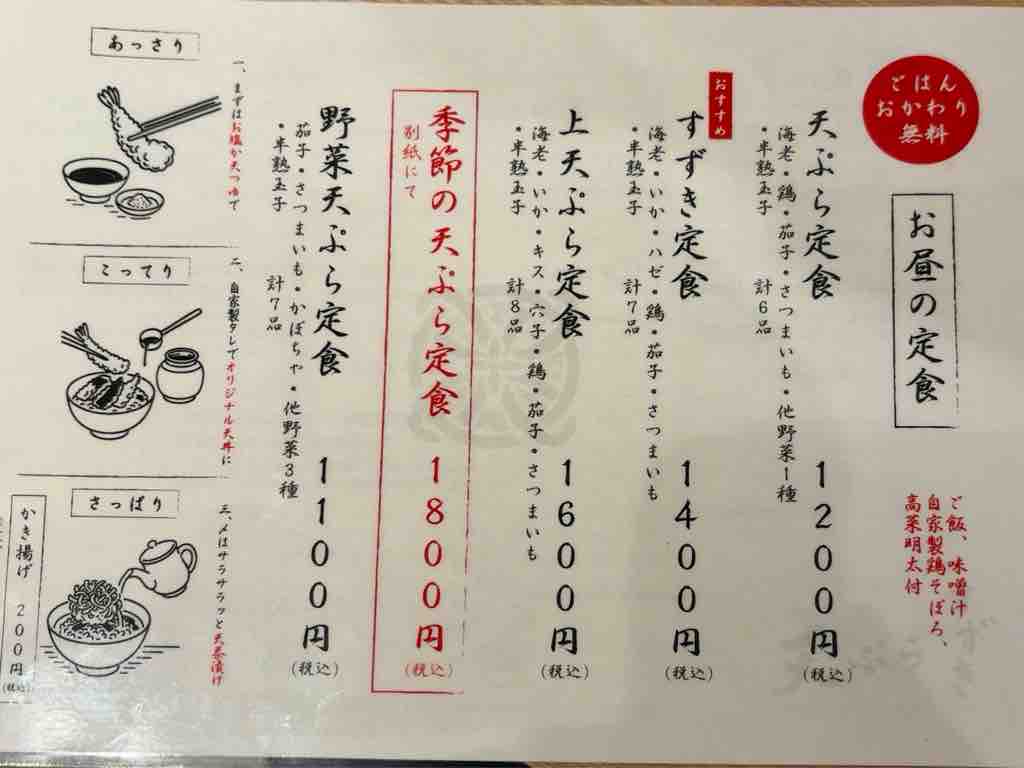 ごはん
おかわり
無料
お昼の定食
ご飯、味噌汁
自家製鶏そぼろ、
高菜明太付
天ぷら定食 1200円(税込)
海老・鶏・茄子・さつまいも・他野菜1種
・半熟玉子 計6品
おすすめ
すずき定食 1400円(税込)
海老・いか・ハゼ・鶏・茄子・さつまいも
・半熟玉子 計7品
上天ぷら定食 1600円(税込)
海老・いか・キス・穴子・鶏・茄子・さつまいも
・半熟玉子 計8品
季節の天ぷら定食 1800円(税込)
別紙にて
野菜天ぷら定食 1100円(税込)
茄子・さつまいも・かぼちゃ・他野菜3種
・半熟玉子 計7品
あっさり
一、まずはお塩か天つゆで
こってり
二、自家製タレでオリジナル天丼に
さっぱり
三、〆はサラサラッと天茶漬け
かき揚げ 200円(税込)